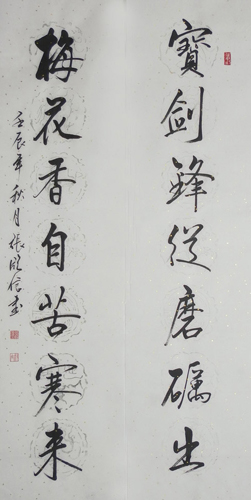 寶劍鋒從磨礪出
梅花香自苦寒來
壬辰年秋月張